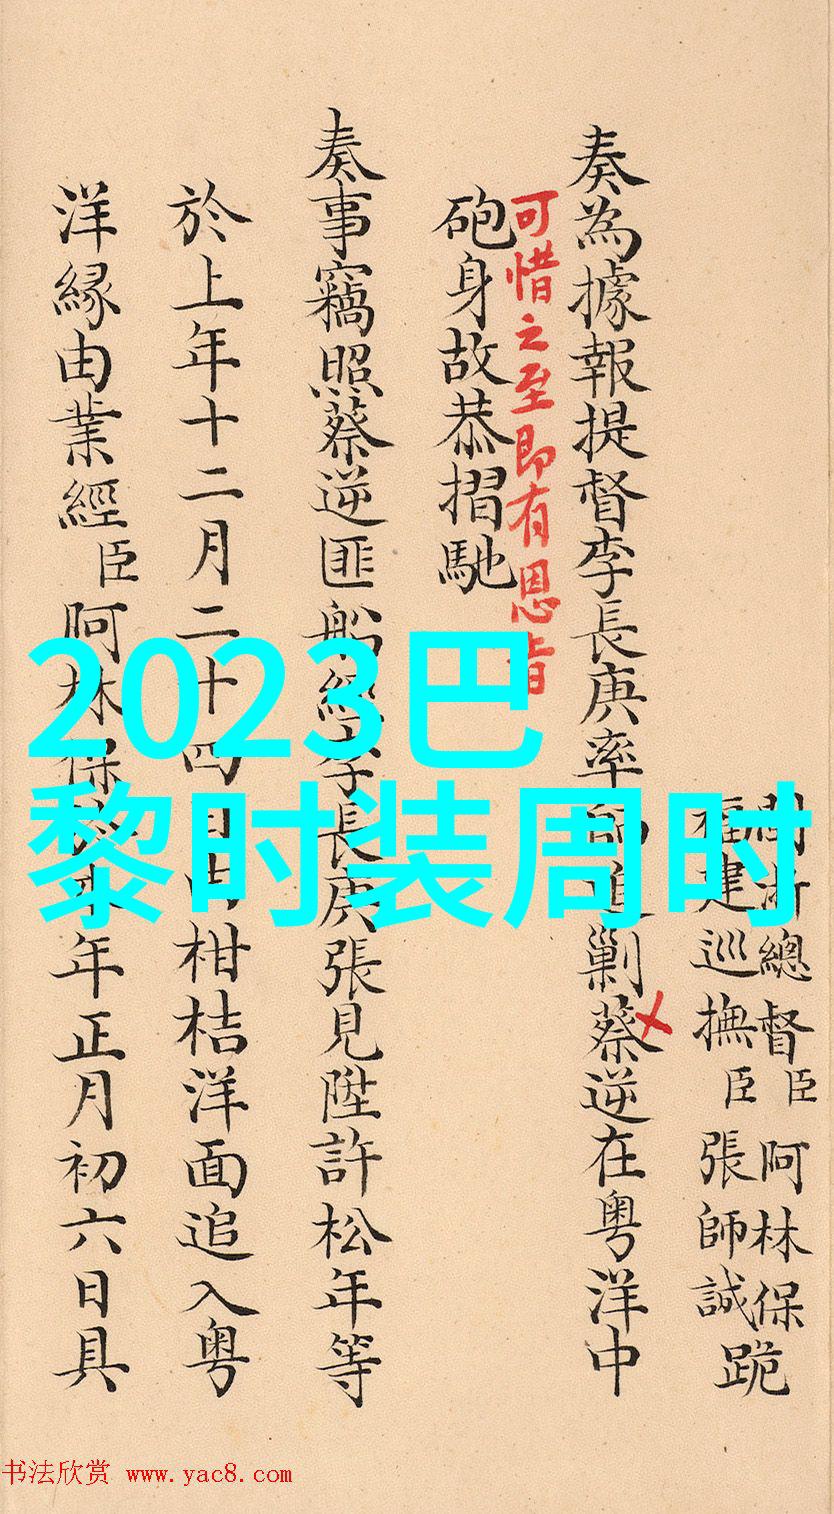 閩浙總督臣阿林保
福建巡撫臣張師誠跪
奏為據報提督李長庚率師追剿蔡逆在粤洋中
可惜之至即有恩旨
砲身故恭摺馳
奏事竊照蔡逆匪船經李長庚張見陞許松年等
於上年十二月二十四日由柑桔洋面追入粤
洋緣由業經臣阿林保於本年正月初六日具
2023巴
黎时装周时
书法欣赏 www.yac8.com